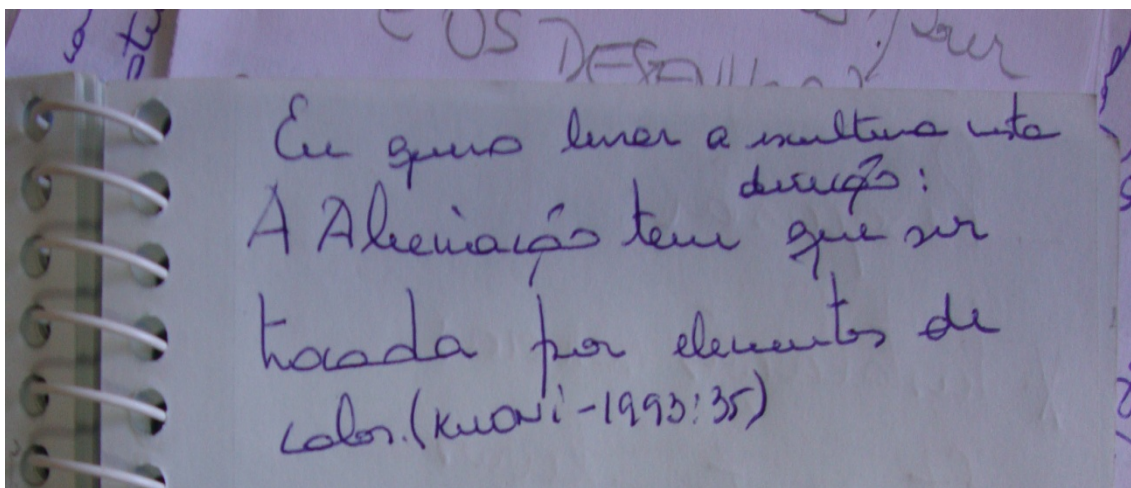 OS DESAFIOS
Eu quero levar a escultura nesta
direção:
A Alienação tem que ser
trocada por elementos de
calor. (KUONI-1993:35)